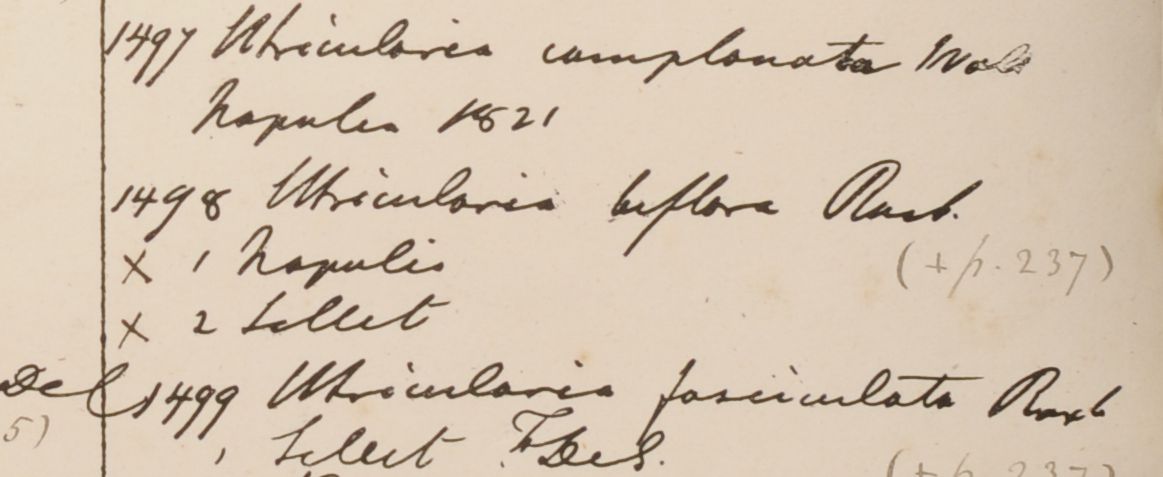 1497 Utricularia complanata Wall
Napalia 1821
1498 Utricularia biflora Roxb.
× 1 Napalia
(+ p. 237)
× 2 Sillet
Del 1499 Utricularia fasciculata Roxb
5)
1 Sillet F. De S.
(+ p. 237)